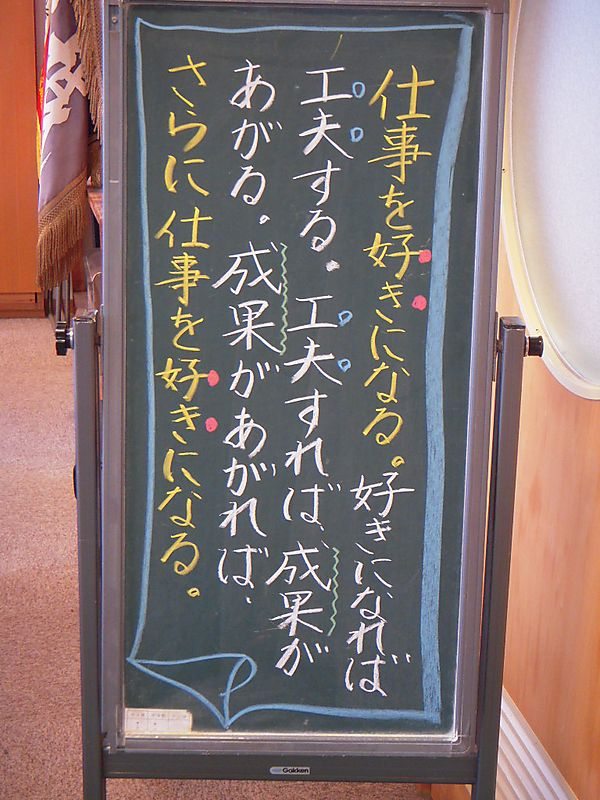 仕事を好きになる。好きになれば
工夫する。工夫すれば、成果が
あがる。成果があがれば、
さらに仕事を好きになる。
Gakken